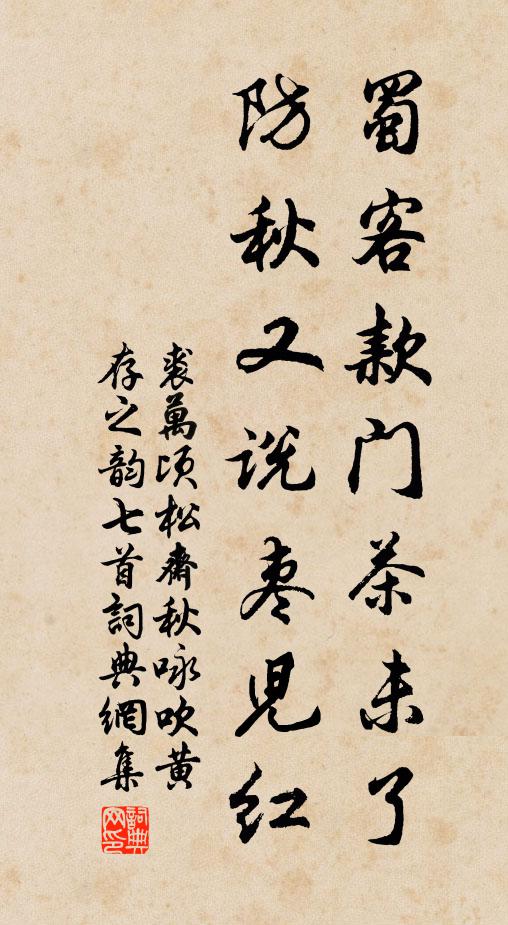 蜀客款门茶未了
防秋又说枣儿红
裘萬顷松齋秋咏吹黄
存之韵七首詞典網集
詞典网印